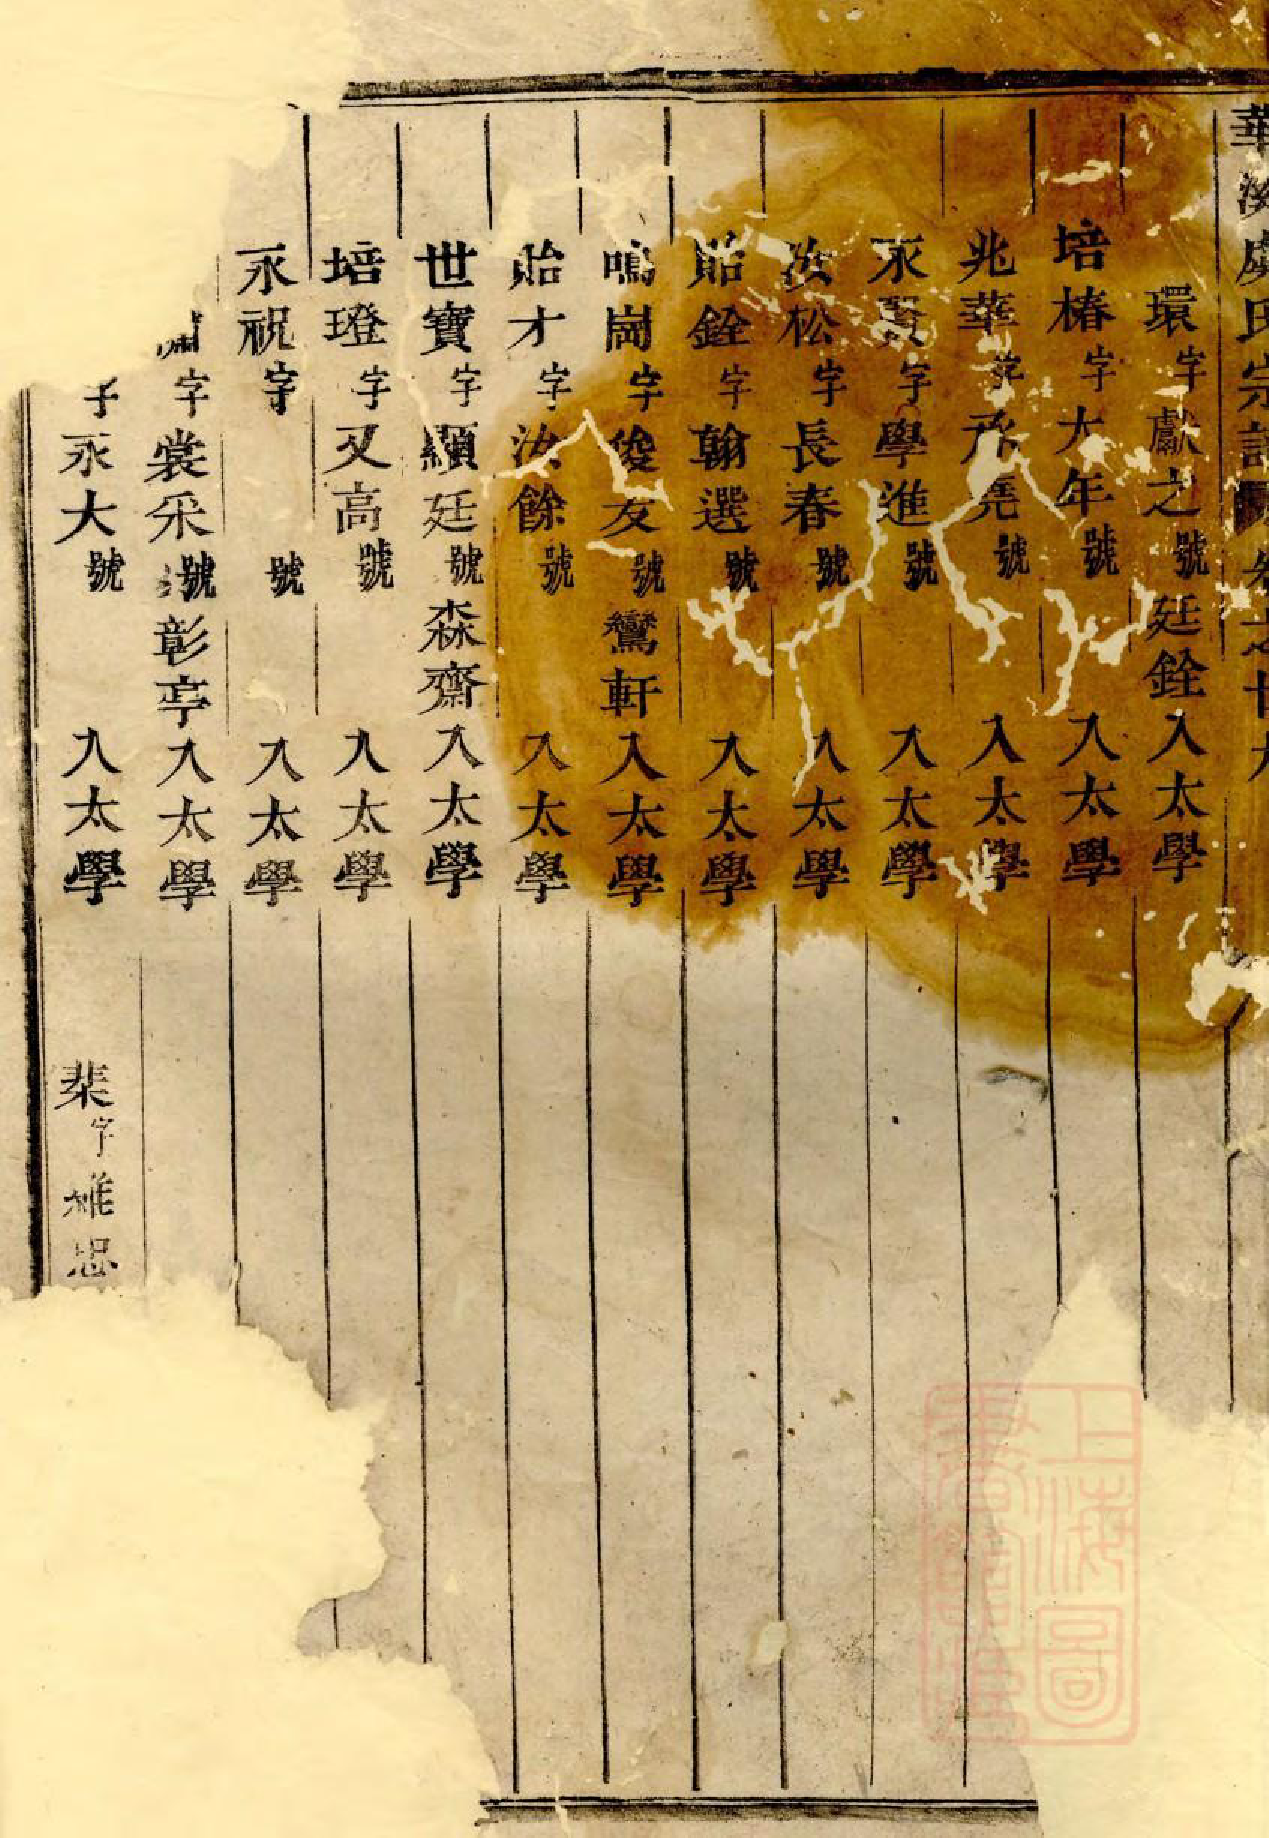 華
氏宗譜 卷之廿九
環字獻之號廷銓入太學
培椿字大年號入太學
兆華字堯號入太學
永賢字學進號入太學
汝松字長春號入太學
貽銓字翰選號入太學
鳴崗字俊友號鸞軒入太學
貽才字汝餘號入太學
世寶字顯廷號森齋入太學
培璒字又高號入太學
永祝字號入太學
字裳采號彰亭入太學
字永大號入太學
棐字維忠
上海圖書館藏